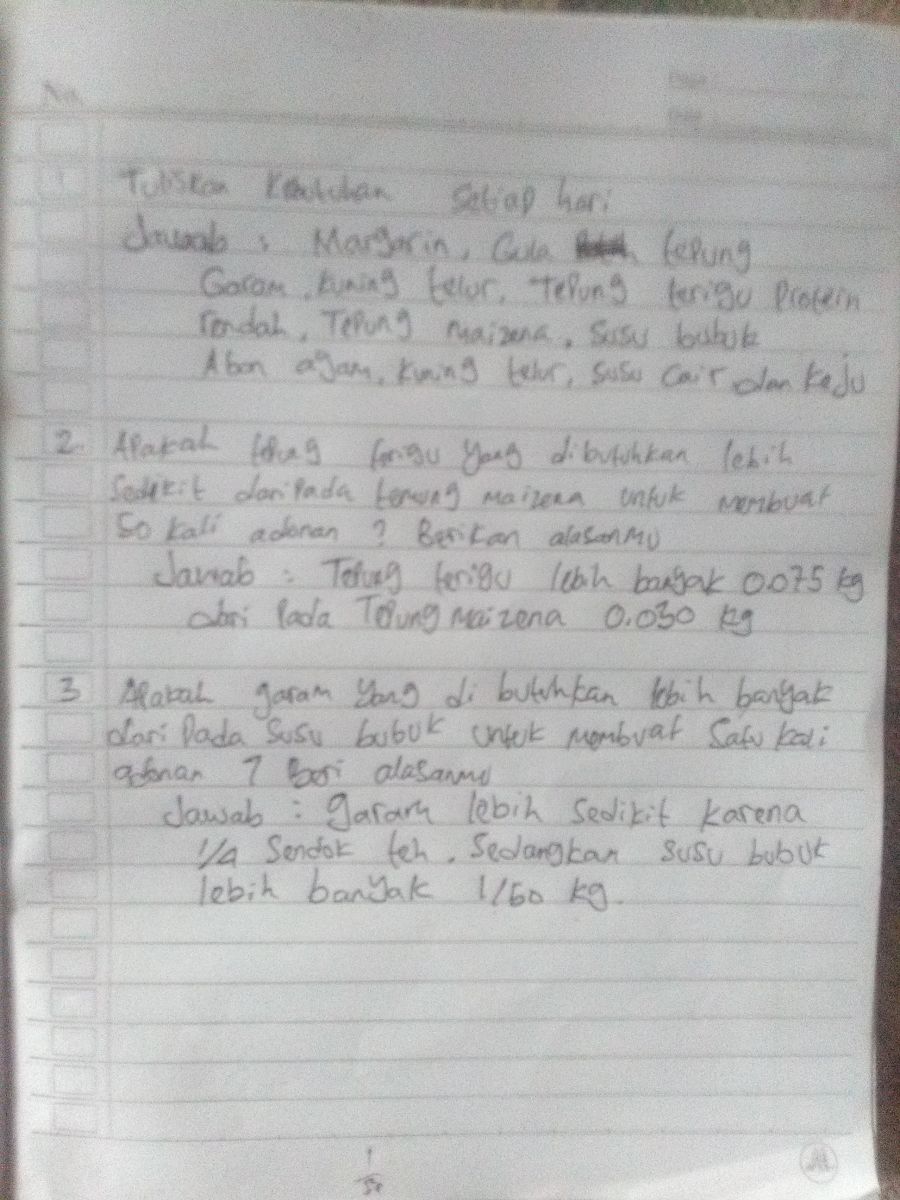 No
1 Tuliskan Kebutuhan Setiap hari
Jawab : Margarin, Gula tepung
Garam, Kuning telur, Tepung terigu Protein
rendah, Tepung Maizena, Susu bubuk
Abon ayam, Kuning telur, Susu Cair dan Keju
2. Apakah tepung terigu yang dibutuhkan lebih
Sedikit daripada tepung maizena untuk membuat
50 kali adonan ? Berikan alasanmu
Jawab : Tepung terigu lebih banyak 0.075 kg
dari Pada Tepung Maizena 0.030 kg
3 Apakah garam yang di butuhkan lebih banyak
dari Pada Susu bubuk untuk membuat Satu kali
adonan ? Beri alasanmu
Jawab : garam lebih Sedikit karena
1/4 Sendok teh. Sedangkan susu bubuk
lebih banyak 1/60 kg.